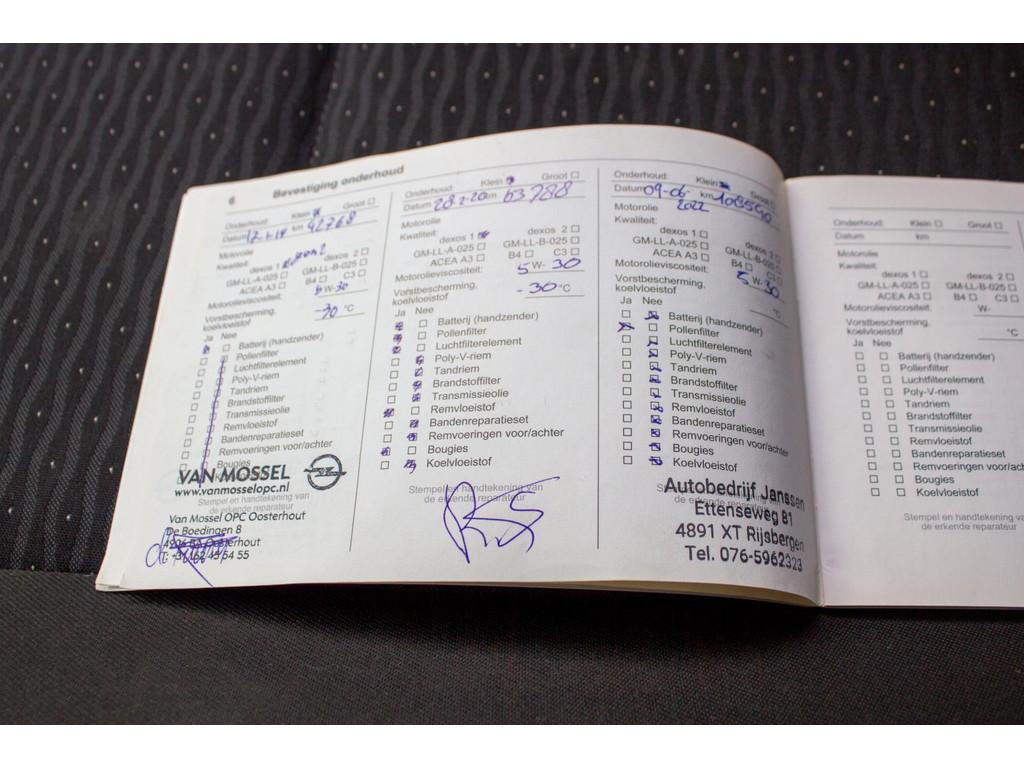 6 Bevestiging onderhoud
Onderhoud: Klein Groot
Datum 12-1-19 km 42768
Kwaliteit:
dexos 1 dexos 2
GM-LL-A-025 GM-LL-B-025
ACEA A3 B4 C3
Motorolieviscositeit: 5 W-30
Vorstbescherming,
koelvloeistof -30 °C
Ja Nee
Batterij (handzender)
Pollenfilter
Luchtfilterelement
Poly-V-riem
Tandriem
Brandstoffilter
Transmissieolie
Remvloeistof
Bandenreparatieset
Remvoeringen voor/achter
Bougies
VAN MOSSEL
www.vanmosselopc.nl
Stempel en handtekening van
de erkende reparateur
Van Mossel OPC Oosterhout
De Boedingen 8
Onderhoud: Klein Groot
Datum 28-2-20 km 63788
Motorolie
Kwaliteit:
dexos 1 dexos 2
GM-LL-A-025 GM-LL-B-025
ACEA A3 B4 C3
Motorolieviscositeit: 5 W-30
Vorstbescherming,
koelvloeistof -30 °C
Ja Nee
Batterij (handzender)
Pollenfilter
Luchtfilterelement
Poly-V-riem
Tandriem
Brandstoffilter
Transmissieolie
Remvloeistof
Bandenreparatieset
Remvoeringen voor/achter
Bougies
Koelvloeistof
Stempel en handtekening van
de erkende reparateur
Onderhoud: Klein Groot
Datum 09-06-2022 km 108590
Motorolie
Kwaliteit:
dexos 1 dexos 2
GM-LL-A-025 GM-LL-B-025
ACEA A3 B4 C3
Motorolieviscositeit: 5 W-30
Vorstbescherming,
koelvloeistof °C
Ja Nee
Batterij (handzender)
Pollenfilter
Luchtfilterelement
Poly-V-riem
Tandriem
Brandstoffilter
Transmissieolie
Remvloeistof
Bandenreparatieset
Remvoeringen voor/achter
Bougies
Koelvloeistof
Stempel en handtekening van
de erkende reparateur
Autobedrijf Janssen
Ettenseweg 81
4891 XT Rijsbergen
Tel. 076-5962323
Onderhoud: Klein Groot
Datum km
Motorolie
Kwaliteit:
dexos 1 dexos 2
GM-LL-A-025 GM-LL-B-025
ACEA A3 B4 C3
Motorolieviscositeit: W-
Vorstbescherming,
koelvloeistof °C
Ja Nee
Batterij (handzender)
Pollenfilter
Luchtfilterelement
Poly-V-riem
Tandriem
Brandstoffilter
Transmissieolie
Remvloeistof
Bandenreparatieset
Remvoeringen voor/ach
Bougies
Koelvloeistof
Stempel en handtekening
de erkende reparateur